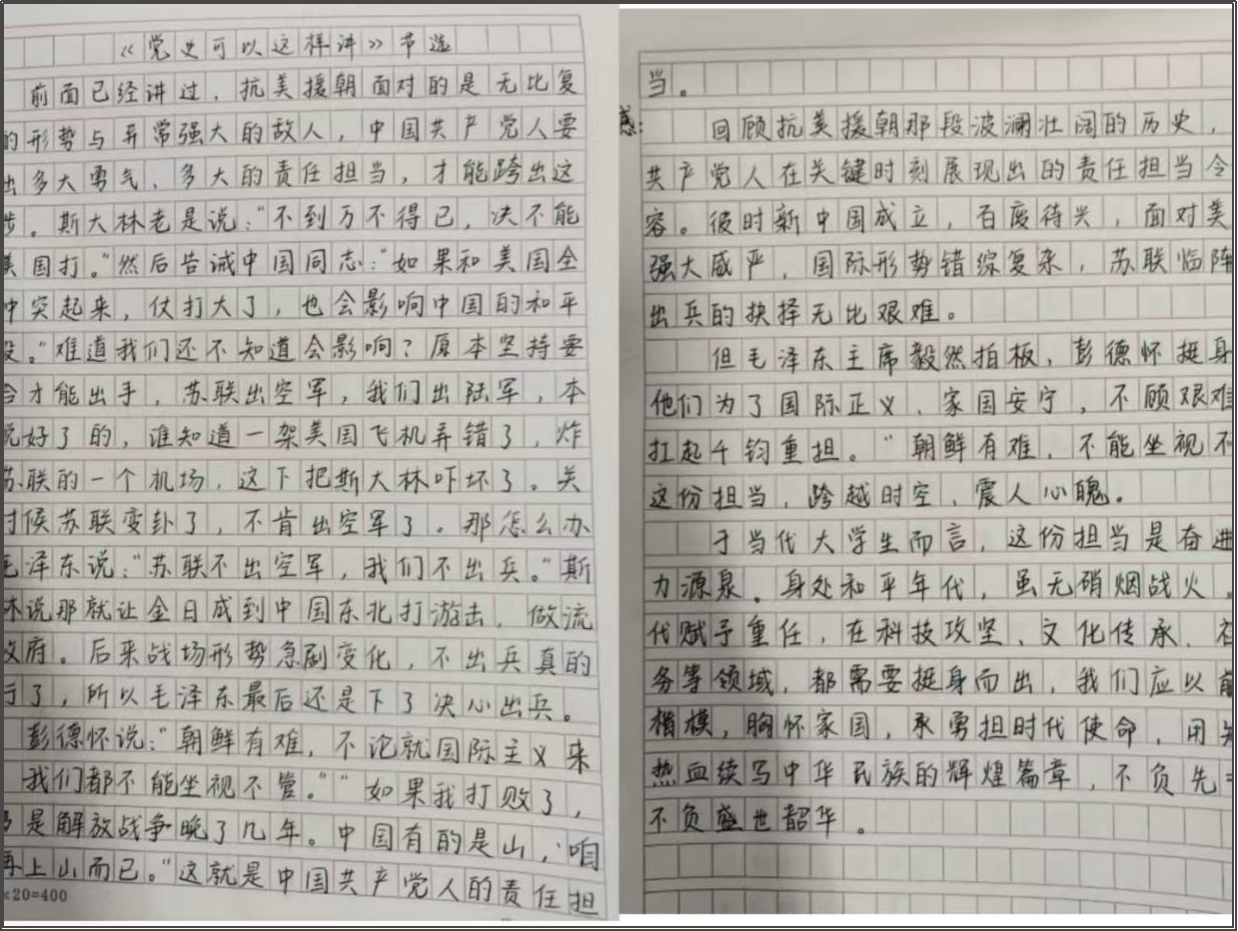 《党史可以这样讲》节选
前面已经讲过，抗美援朝面对的是无比复
的形势与异常强大的敌人，中国共产党人要
出多大勇气、多大的责任担当，才能跨出这
步。斯大林老是说：“不到万不得已，决不能
美国打。”然后告诫中国同志：“如果和美国全
冲突起来，仗打大了，也会影响中国的和平
设。”难道我们还不知道会影响？原本坚持要
合才能出手，苏联出空军，我们出陆军，本
说好了的，谁知道一架美国飞机弄错了，炸
苏联的一个机场，这下把斯大林吓坏了。关
时候苏联变卦了，不肯出空军了。那怎么办
毛泽东说：“苏联不出空军，我们不出兵。”斯
林说那就让金日成到中国东北打游击，做流
政府。后来战场形势急剧变化，不出兵真的
行了，所以毛泽东最后还是下了决心出兵。
彭德怀说：“朝鲜有难，不论就国际主义来
我们都不能坐视不管。”“如果我打败了，
是解放战争晚了几年。中国有的是山，咱
再上山而已。”这就是中国共产党人的责任担
×20=400
当。
感：
回顾抗美援朝那段波澜壮阔的历史，
共产党人在关键时刻展现出的责任担当令
容。彼时新中国成立，百废待兴，面对美
强大威严，国际形势错综复杂，苏联临阵
出兵的抉择无比艰难。
但毛泽东主席毅然拍板，彭德怀挺身
他们为了国际正义、家国安宁，不顾艰难
扛起千钧重担。“朝鲜有难，不能坐视不
这份担当，跨越时空，震人心魄。
于当代大学生而言，这份担当是奋进
力源泉。身处和平年代，虽无硝烟战火，
代赋予重任，在科技攻坚、文化传承、
务等领域，都需要挺身而出，我们应以前
楷模，胸怀家国，承勇担时代使命，用
热血续写中华民族的辉煌篇章，不负先
不负盛世韶华。